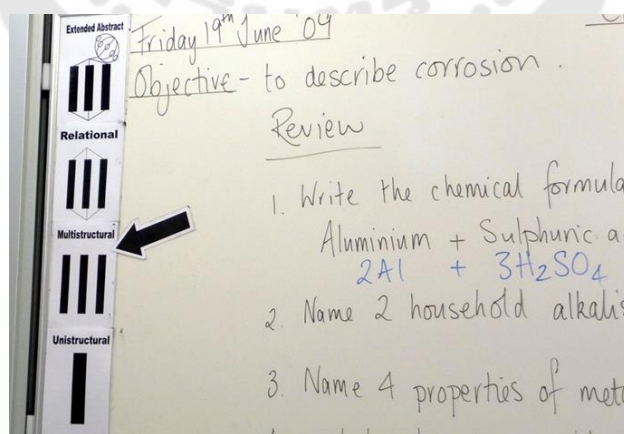 Extended Abstract
Relational
Multistructural
Unistructural
Friday 19th June '09
Objective - to describe corrosion.
Review
1. Write the chemical formula
Aluminium + Sulphuric a
2Al + 3H2SO4
2. Name 2 household alkalis
3. Name 4 properties of meta